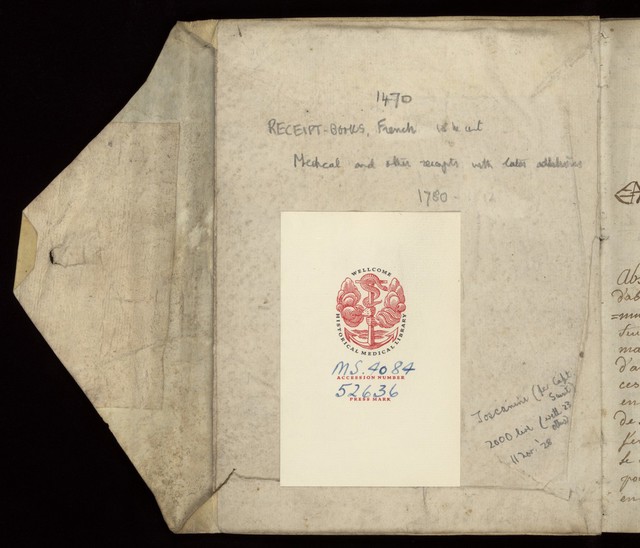 1470
RECEIPT-BOOKS, French
Medical and other receipts with later additions
1780
WELLCOME
HISTORICAL MEDICAL LIBRARY
MS. 4084
ACCESSION NUMBER
52636
PRESS MARK
Toscanini (per Capt
2000 lire (with 23
others)
11 Nov. '28
abs
d'ab
ma
d'a
ces
en
de
en